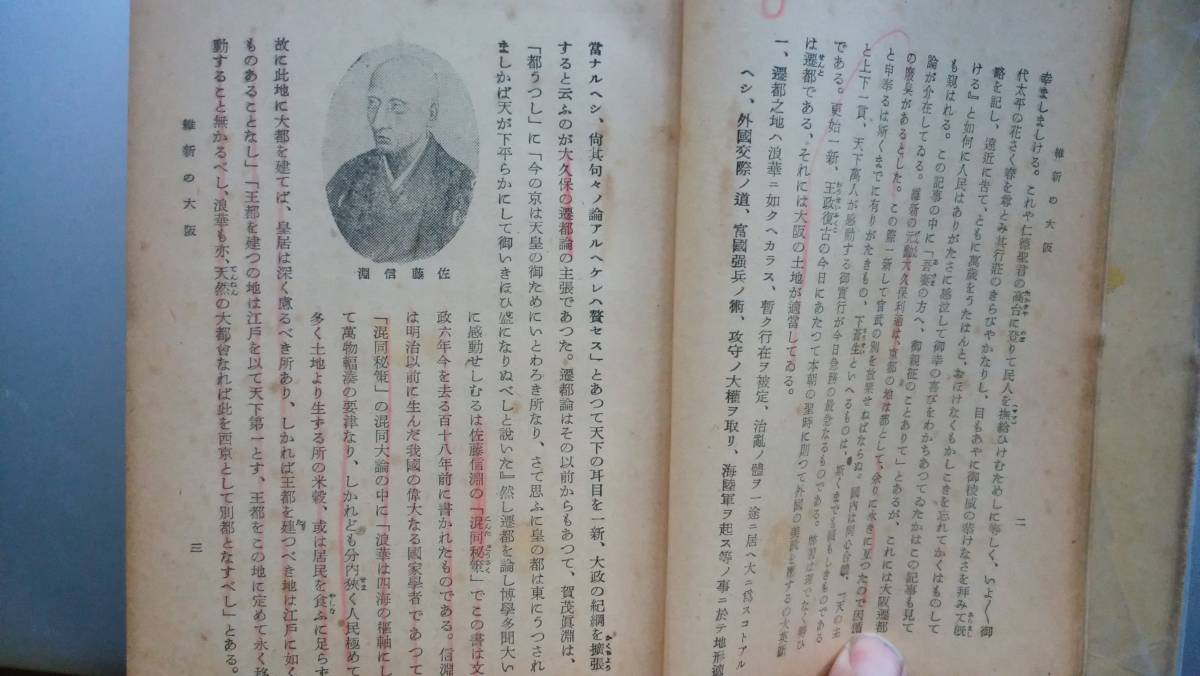 維新の大阪
二
幸ましましける。これや仁德聖君の高台に登りて民人を撫給ひけむためしに等しく、いよ〱御
代太平の花さく春を尊とみ其行莊のきらびやかなりし、目もあやに御稜威の
略を記し、遠近に告て、ともに萬歳をうたはんと、おほけなくもかしこきを忘れてかくはものして
ける』と如何に人民はありがたさに感泣して御幸の喜びをわかちあつてゐたかはこの記事も見て
も窺はれる。この記事の中に「吾妻の方へ、御親征のことありて」とあるが、これには大阪遷都
論が介在してゐる。維新の元勳大久保利通は、京都の地は都として、余りに永きに亙つたので因循
の廢臭があるとした。この際一新して官武の別を放棄せねばならぬ。國内は同心合體、一天の主
と申奉るは斯くまでに有りがたきもの、下蒼生といへるものは、斯くまでも頼もしきものである
と上下一貫、天下萬人が感動する御實行が今日急務の最急なるものである。
である。更始一新、王政復古の今日にあたつて本朝の聖時に則つて外國の美政を壓するの大英斷
は遷都である、それには大阪の土地が適當してゐる。
一、遷都之地ヘ浪華ニ如クヘカラス、暫ク行在ヲ被定、治亂ノ體ヲ一途ニ居ヘ大ニ爲スコトアル
ヘシ、外國交際ノ道、富國强兵ノ術、攻守ノ大權ヲ取リ、海陸軍ヲ起ス等ノ事ニ於テ地形適
當ナルヘシ、尙其句々ノ論アルヘケレヘ贅セス」とあつて天下の耳目を一新、大政の紀綱を擴張
すると云ふのが大久保の遷都論の主張であつた。遷都論はその以前からもあつて、賀茂眞淵は、
「都うつし」に「今の京は天皇の御ためにいとわろき所なり、さて思ふに皇の都は東にうつされ
ましかば天が下平らかにして御いきほひ盛になりぬべしと說いた』然し遷都を論し博學多聞大い
に感動せしむるは佐藤信淵の「混同秘策」でこの書は文
政六年今を去る百十八年前に書かれたものである。信淵
は明治以前に生んだ我國の偉大なる國家學者であつて
「混同秘策」の混同大論の中に「浪華は四海の樞軸にし
て萬物輻湊の要津なり、しかれども分内狹く人民極めて
多く土地より生ずる所の米穀、或は居民を食ふに足らず
佐藤信淵
故に此地に大都を建てば、皇居は深く慮るべき所あり、しかれば王都を建つべき地は江戸に如く
ものあることなし」「王都を建つの地は江戸を以て天下第一とす、王都をこの地に定めて永く移
動すること無かるべし、浪華も亦、天然の大都會なれば此を西京として別都となすべし」とある。
維新の大阪
三